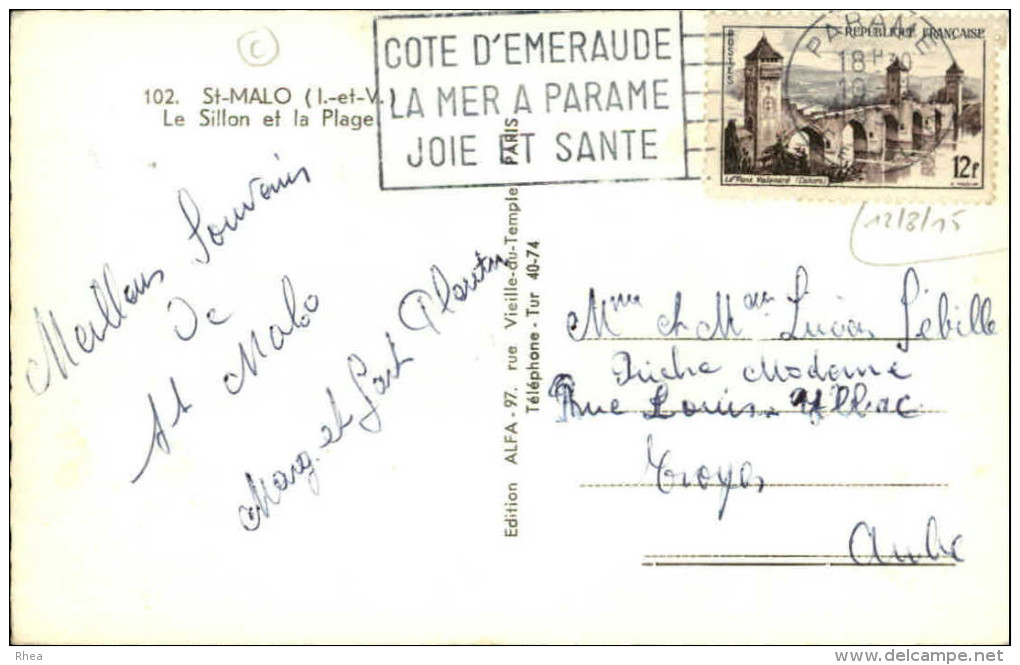 102. St-MALO (I.-et-V.)
Le Sillon et la Plage
COTE D'EMERAUDE
LA MER A PARAME
JOIE ET SANTE
PARAME
18H30
REPUBLIQUE FRANÇAISE
POSTES
12F
Le Pont Valentré (Cahors)
12/8/15
Meilleurs Souvenirs
De
St Malo
Marg. et
Edition ALFA - 97, rue Vieille-du-Temple PARIS
Téléphone - Tur 40-74
Mme et M Lucien Sébille
Moderne
Rue Louis
Troyes
Aube
©
© delcampe.net
Website : WWW.LA-BOURSE.com